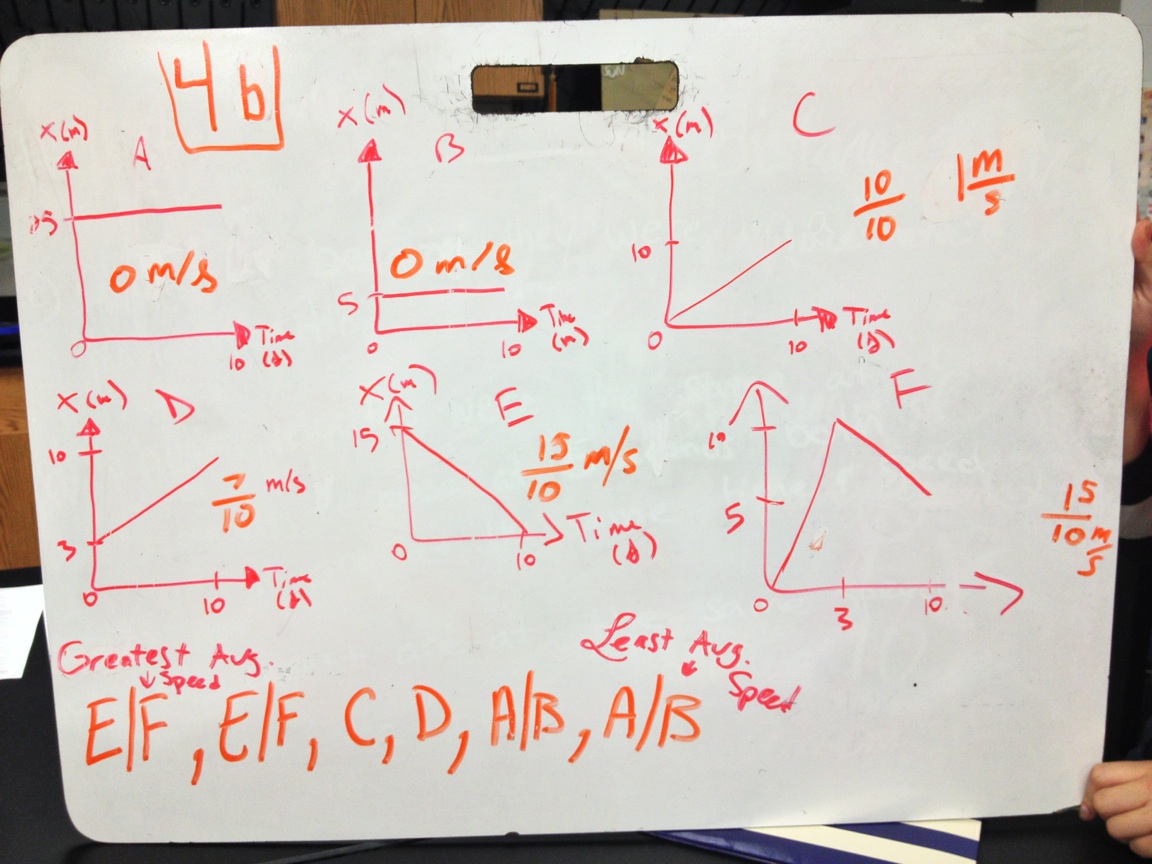 4b
A
X(m)
0 m/s
0
10
Time
(s)
B
X(m)
0 m/s
5
0
10
Time
(m)
C
X(m)
10
0
10
Time
(s)
10
10
1 m
s
D
X(m)
10
3
0
10
Time
(s)
7
10
m/s
E
X(m)
15
0
10
Time
(s)
15
10
m/s
F
10
5
0
3
10
15
10
m
s
Greatest Avg.
Speed
Least Avg.
Speed
E/F, E/F, C, D, A/B, A/B